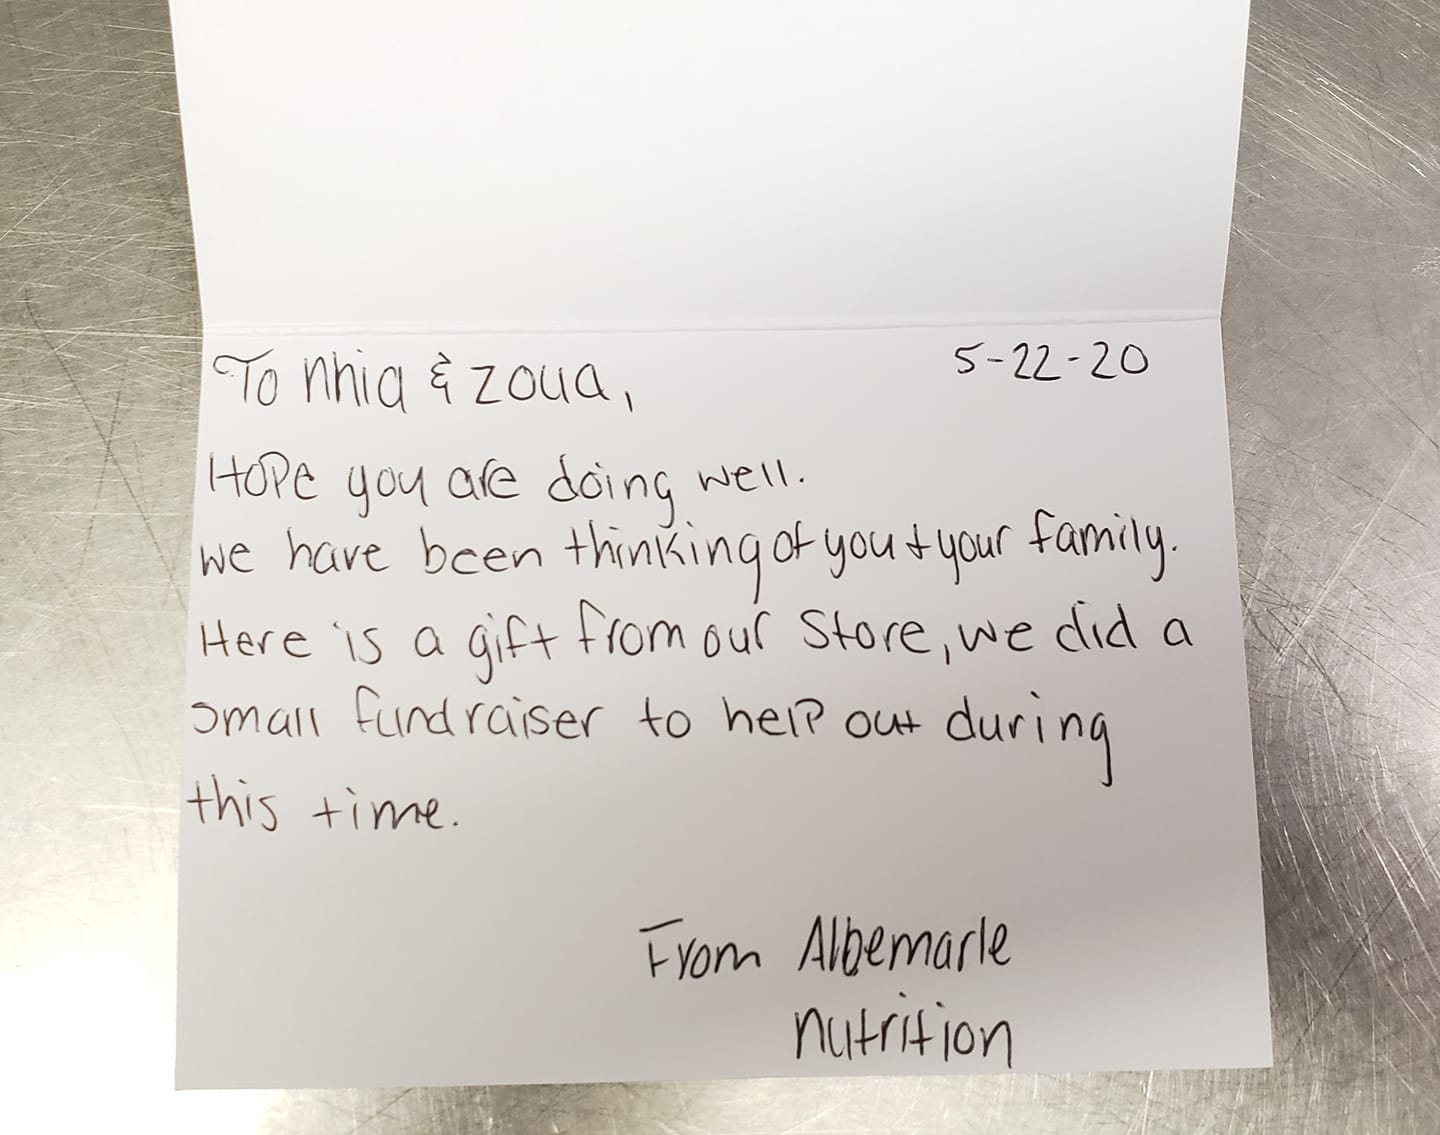 To Nhia & Zoua, 5-22-20
Hope you are doing well.
we have been thinking of you + your family.
Here is a gift from our Store, we did a
small fundraiser to help out during
this time.
From Albemarle
Nutrition